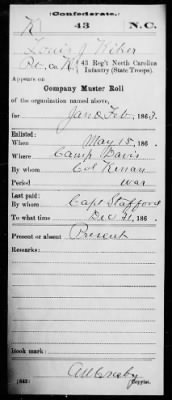 (Confederate.)
43 N.C.
Louis J Wiher
Co. K, 43 Reg't North Carolina
Infantry (State Troops).
Appears on
Company Muster Roll
of the organization named above,
for Jan & Feb, 1863.
Enlisted:
When May 15, 186 .
Where Camp Davis
By whom Col Kenan
Period war
Last paid:
By whom Capt Stafford
To what time Dec 31, 186 .
Present or absent Present
Remarks:
Book mark:
Copyist.